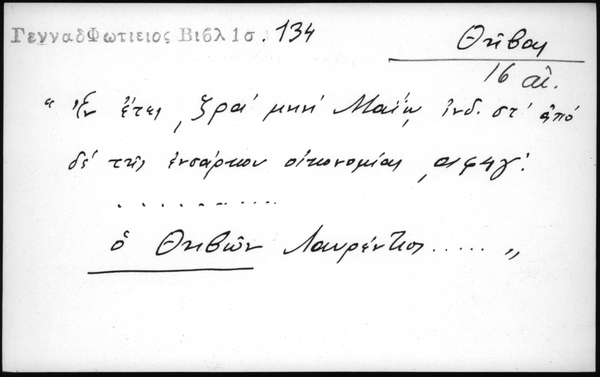 ΓενναδΦωτιειος Βιβλ 1σ. 134
Θῆβαι
16 αἰ.
“Ἐν ἔτει ͵ζρα΄ μηνί Μαΐῳ ἰνδ. στ΄ ἀπό
δέ τῆς ἐνσάρκου οἰκονομίας ͵αφϟγ΄.
. . . . . . . . . .
ὁ Θηβῶν Λαυρέντιος ..... „